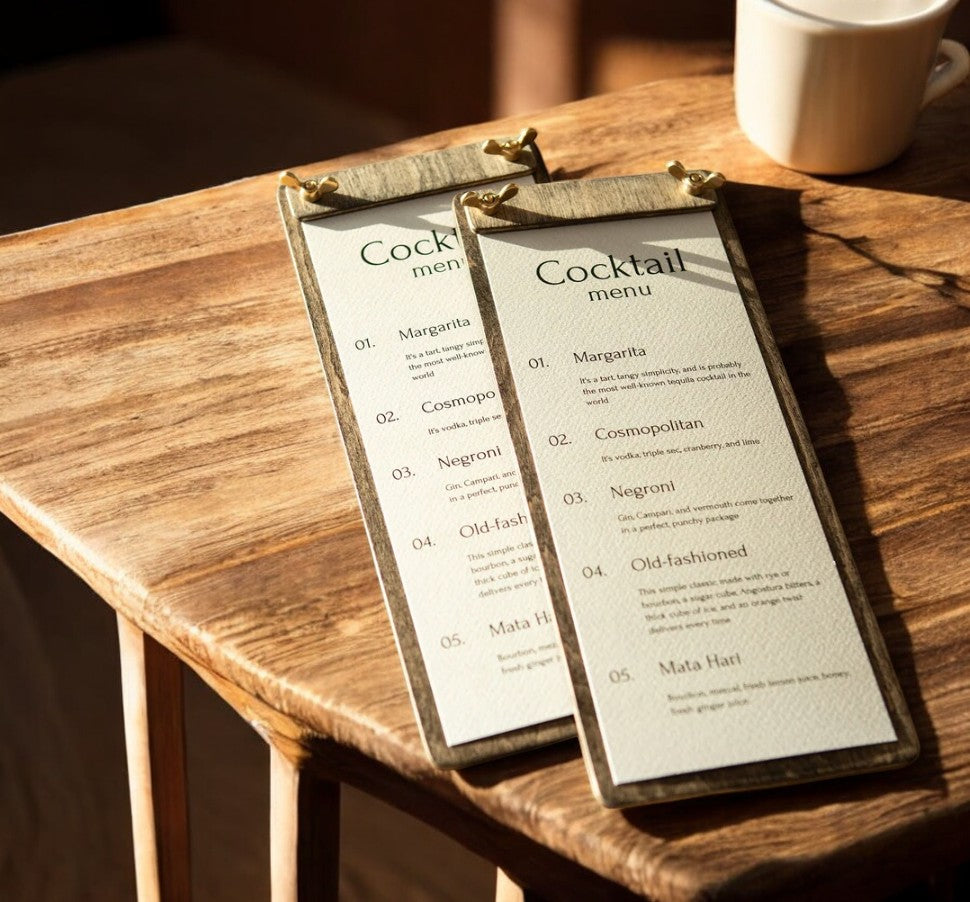 Cockt
menu
01.
Margarita
It's a tart, tangy simp
the most well-know
world
02.
Cosmopo
It's vodka, triple se
03.
Negroni
Gin, Campari, anc
in a perfect, punc
04.
Old-fash
This simple clas
bourbon, a suga
thick cube of ic
delivers every
05.
Mata Ha
Bourbon, mez
fresh ginger j
Cocktail
menu
01.
Margarita
It's a tart, tangy simplicity, and is probably
the most well-known tequila cocktail in the
world
02.
Cosmopolitan
It's vodka, triple sec, cranberry, and lime
03.
Negroni
Gin, Campari, and vermouth come together
in a perfect, punchy package
04.
Old-fashioned
This simple classic made with rye or
bourbon, a sugar cube, Angostura bitters, a
thick cube of ice, and an orange twist
delivers every time
05.
Mata Hari
Bourbon, mezcal, fresh lemon juice, honey,
fresh ginger juice